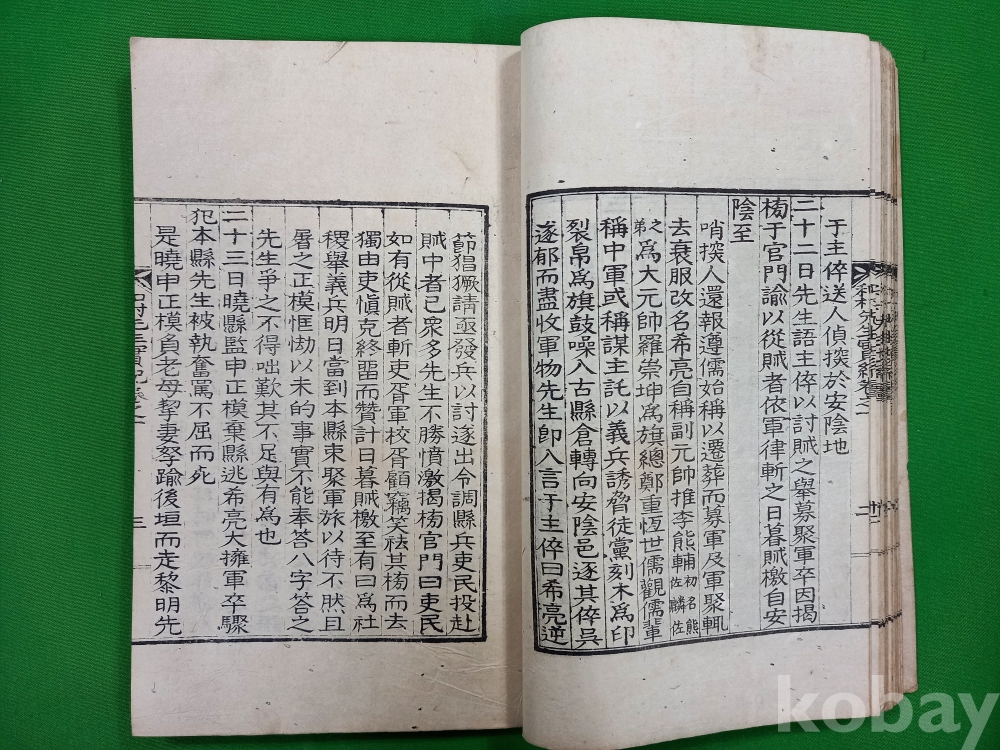 于主倅送人偵探於安陰地
二十二日先生語主倅以討賊之舉募聚軍卒因揭
榜于官門諭以從賊者依軍律斬之日暮賊檄自安
陰至
哨探人還報遵儒始稱以遷葬而募軍及軍聚輒
去衰服改名希亮自稱副元帥推李熊輔初名熊佐麟佐
之弟爲大元帥羅崇坤爲旗總鄭重恆世儒觀儒輩
稱中軍或稱謀主託以義兵誘脅徒黨刻木爲印
裂帛爲旗鼓噪入古縣倉轉向安陰邑逐其倅吳
遂郁而盡收軍物先生卽入言于主倅曰希亮逆
節猖獗請亟發兵以討逐出令調縣兵吏民投赴
賊中者已衆多先生不勝憤激揭榜官門曰吏民
如有從賊者斬吏胥軍校胥顧竊笑祛其榜而去
獨由吏愼克終畱而贊計日暮賊檄至有曰爲社
稷舉義兵明日當到本縣束聚軍旅以待不然且
屠之正模恇㤼以未的事實不能奉答八字答之
先生爭之不得咄歎其不足與有爲也
二十三日曉縣監申正模棄縣逃希亮大擁軍卒驟
犯本縣先生被執奮罵不屈而死
是曉申正模負老母挈妻孥踰後垣而走黎明先
三
kobay